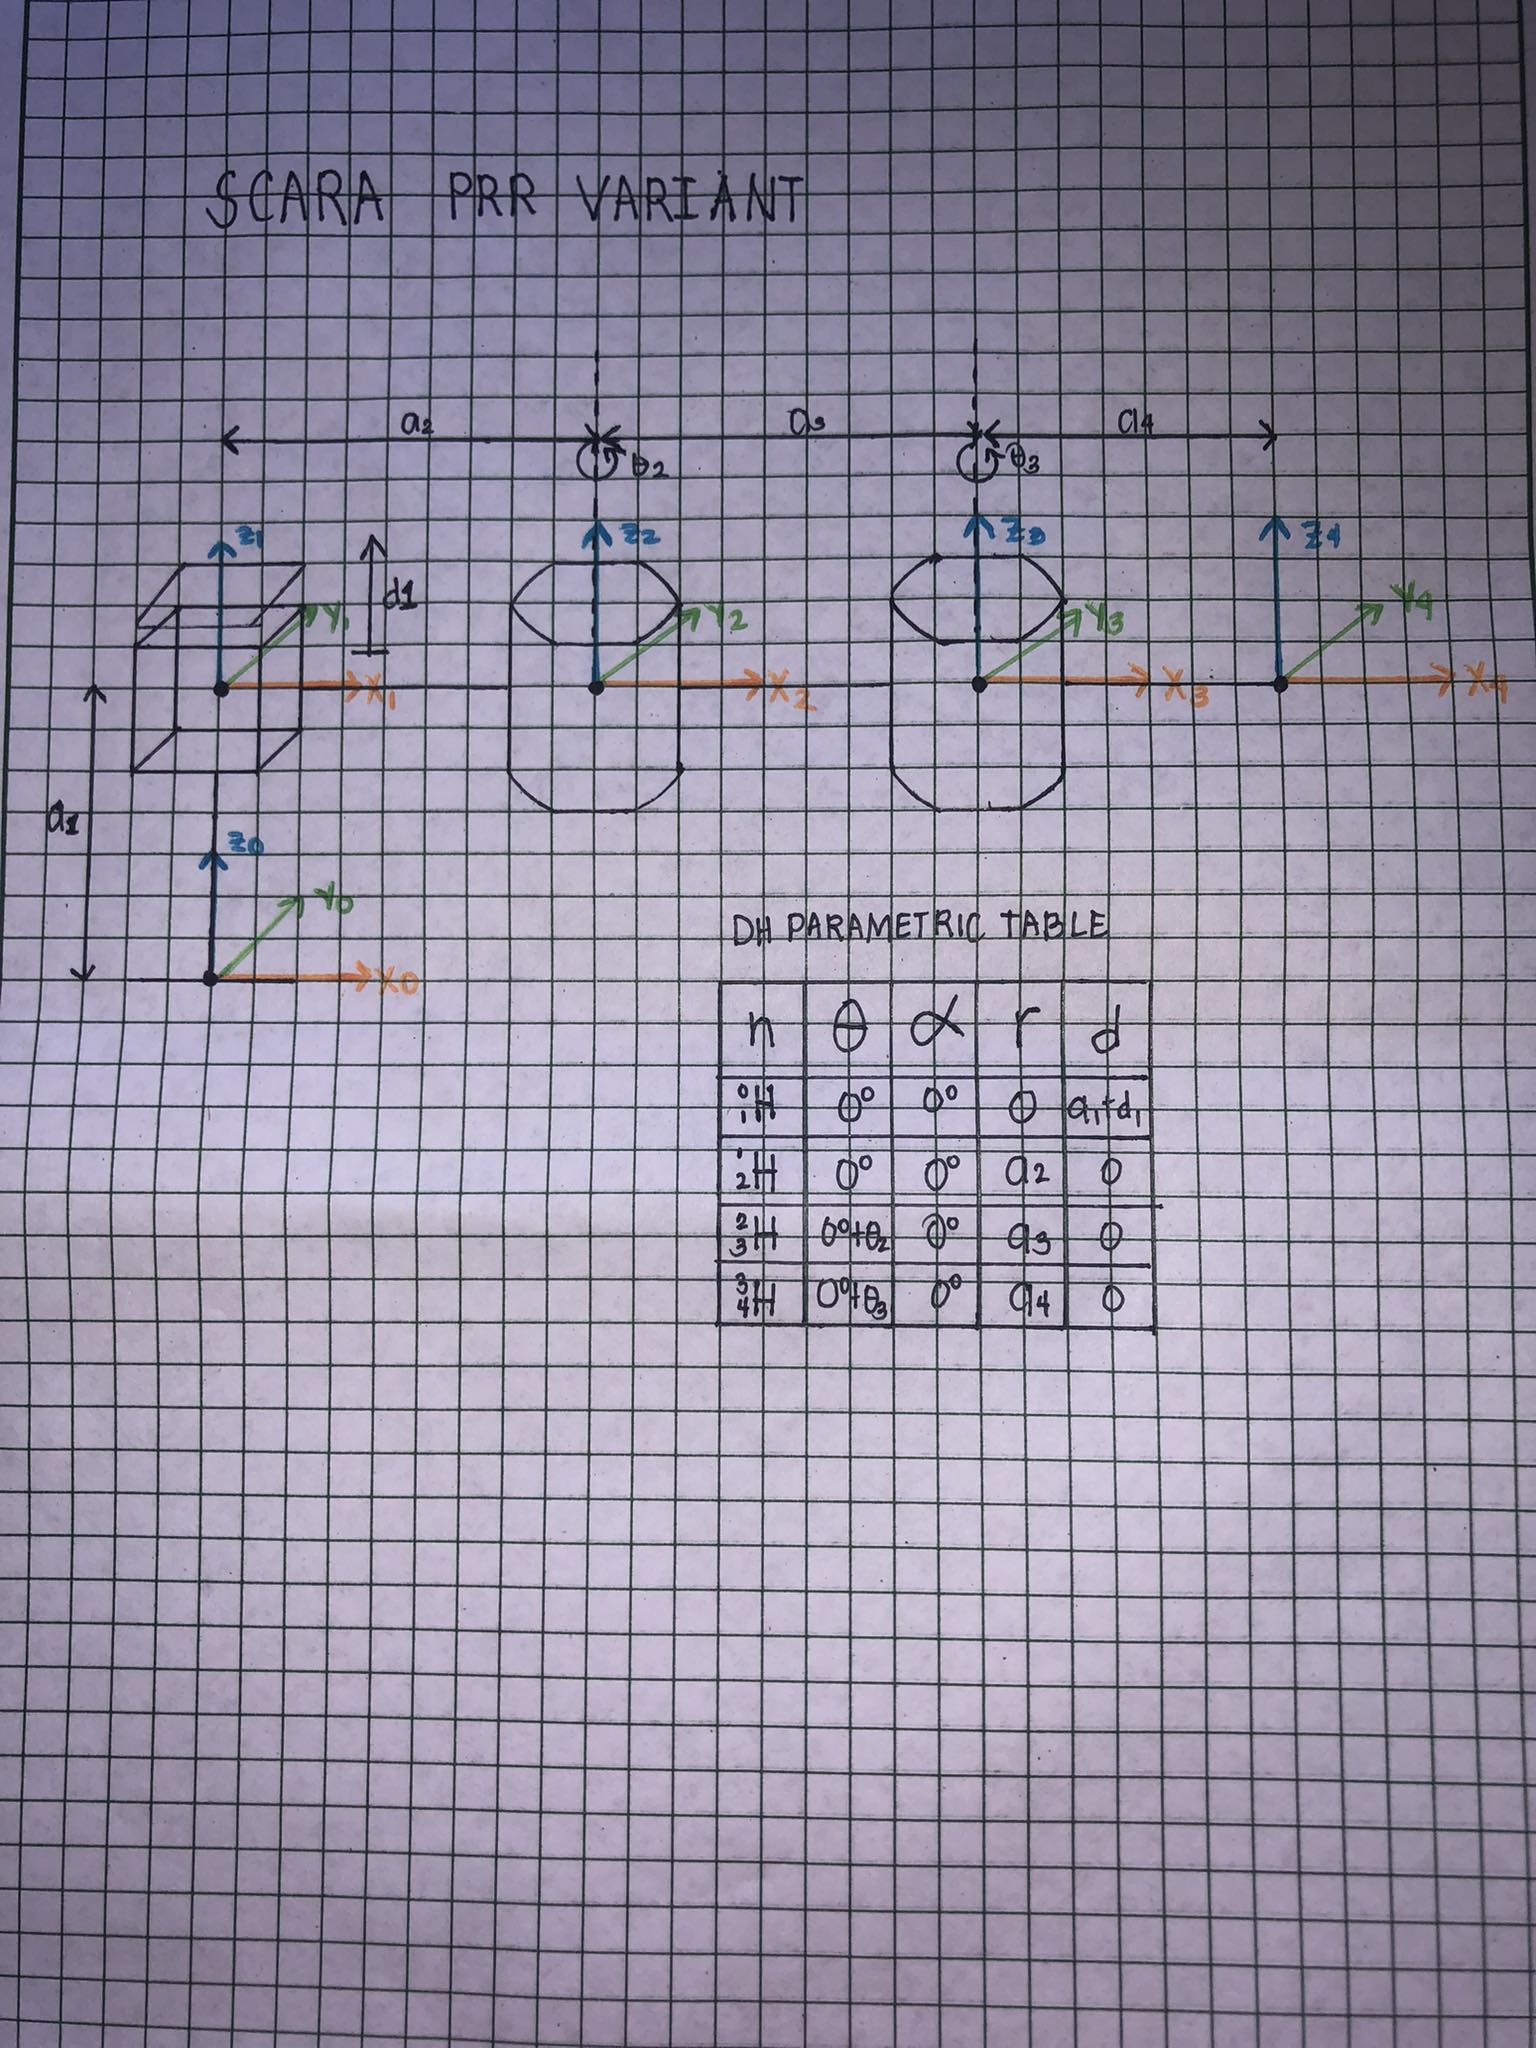 SCARA PRR VARIANT
a2 a3 a4
θ2 θ3
z1 z2 z3 z4
d1
Y1 Y2 Y3 Y4
X1 X2 X3 X4
a1
z0
Y0
X0
DH PARAMETRIC TABLE
n θ α r d
⁰₁H 0° 0° 0 a₁+d₁
¹₂H 0° 0° a2 0
²₃H 0°+θ₂ 0° a3 0
³₄H 0°+θ₃ 0° a4 0